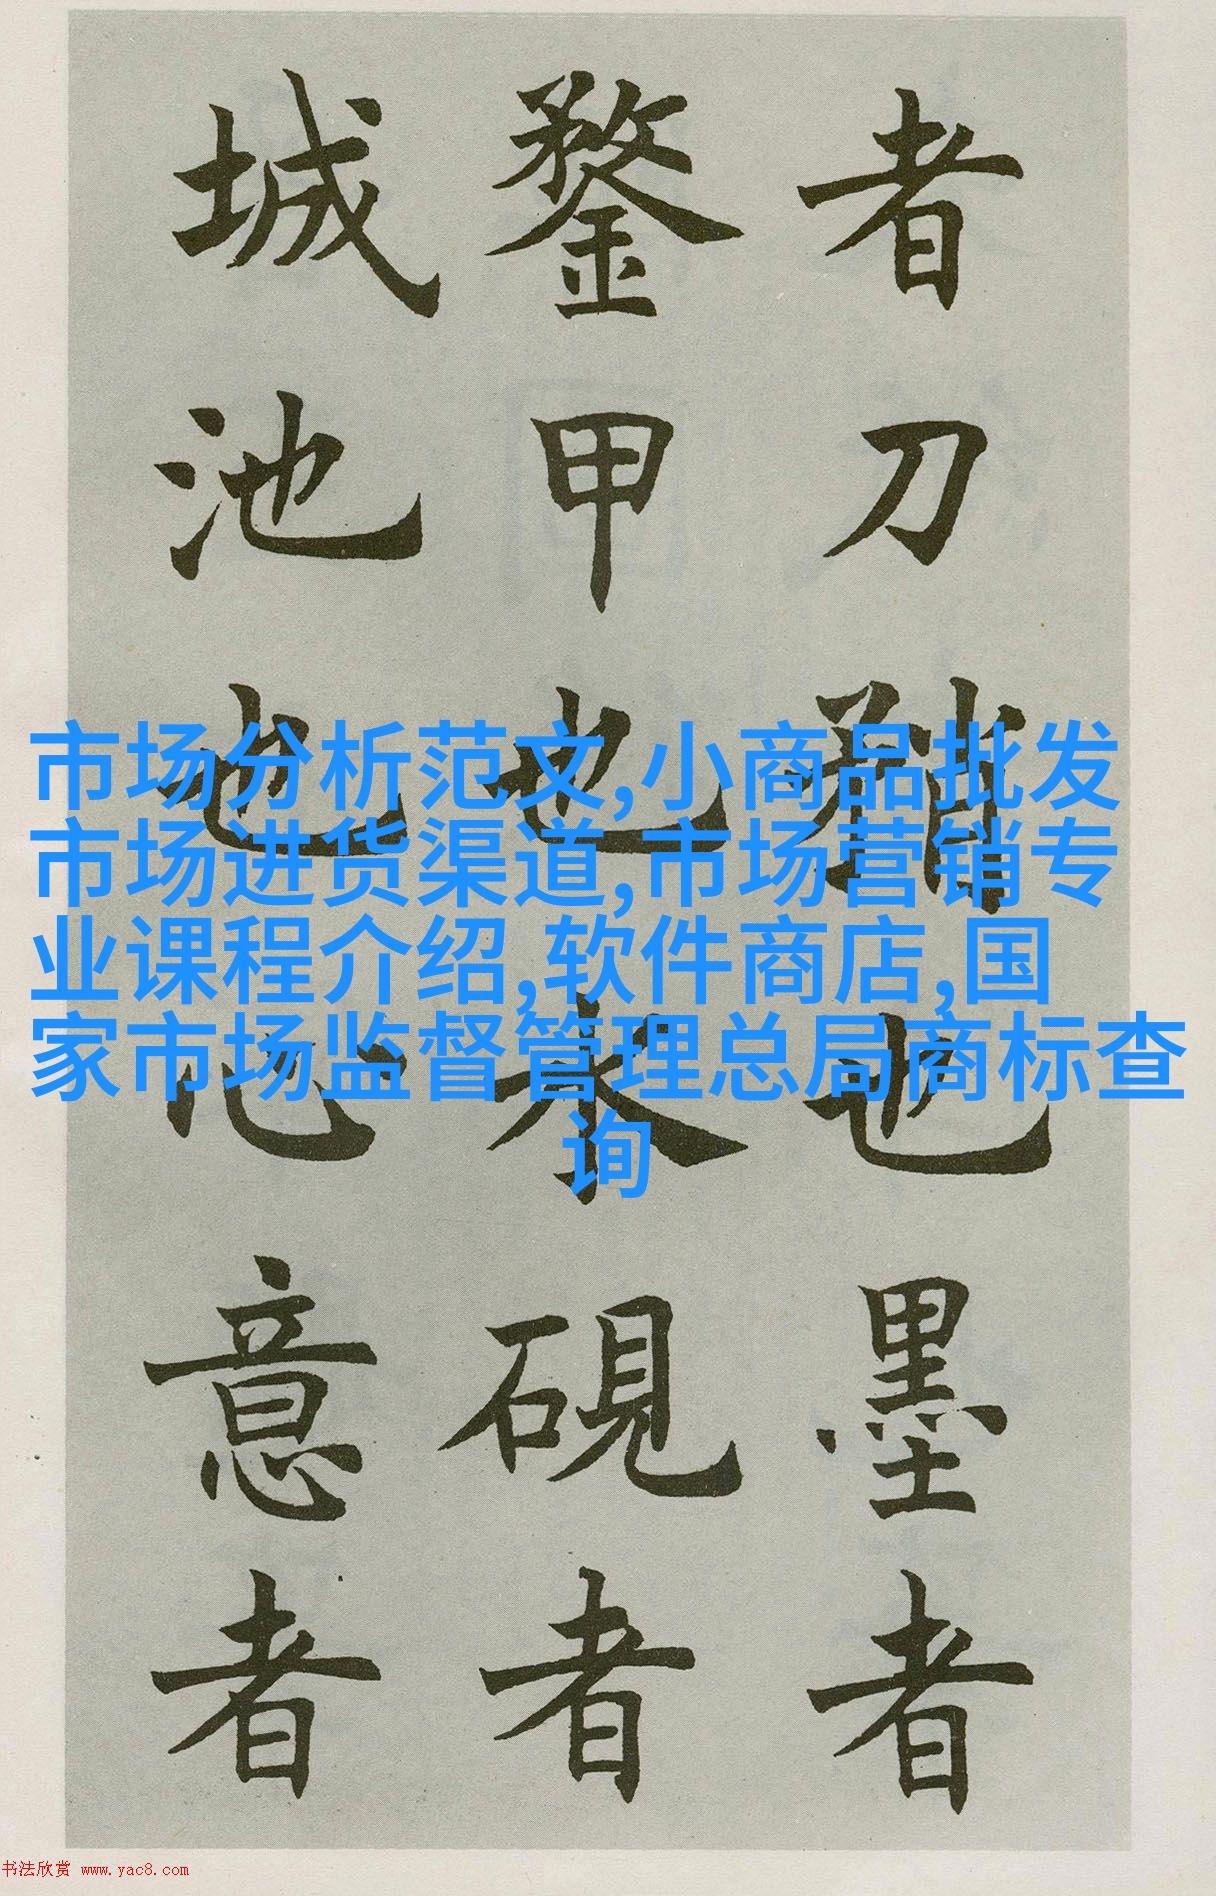 者刀矟也墨者
鍪甲也水硯者
城池也心意者
市场分析范文,小商品批发
市场进货渠道,市场营销专
业课程介绍,软件商店,国
家市场监督管理总局商标查
询
书法欣赏 www.yac8.com